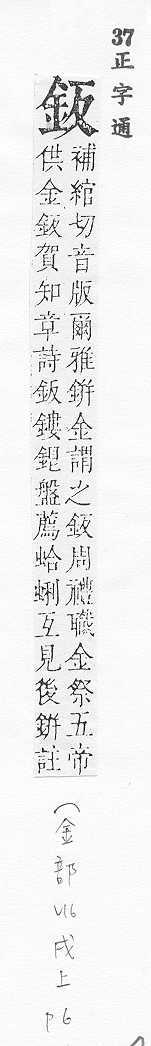 37
正字通
鈑
補綰切音版爾雅鉼金謂之鈑周禮職金祭五帝
供金鈑賀知章詩鈑鏤銀盤薦蛤蜊互見後鉼註
(金部
戌上
p6